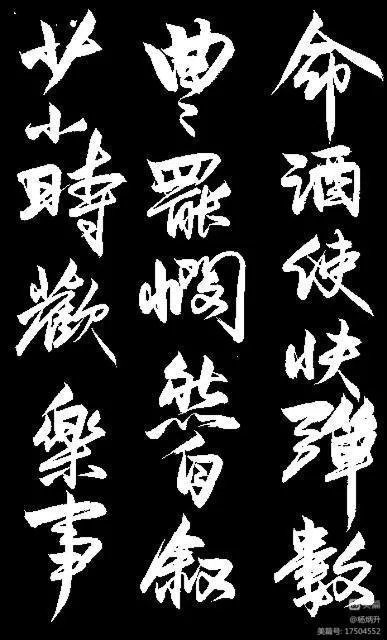 命酒使快彈數
曲〻罷憫然自叙
少小時歡樂事
@杨炳升
美篇号: 17504552